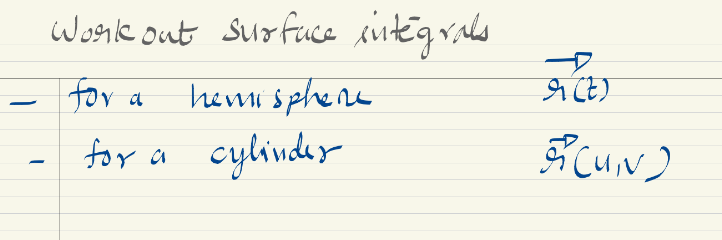 Work out surface integrals
- for a hemisphere r⃗(t)
- for a cylinder r⃗(u,v)